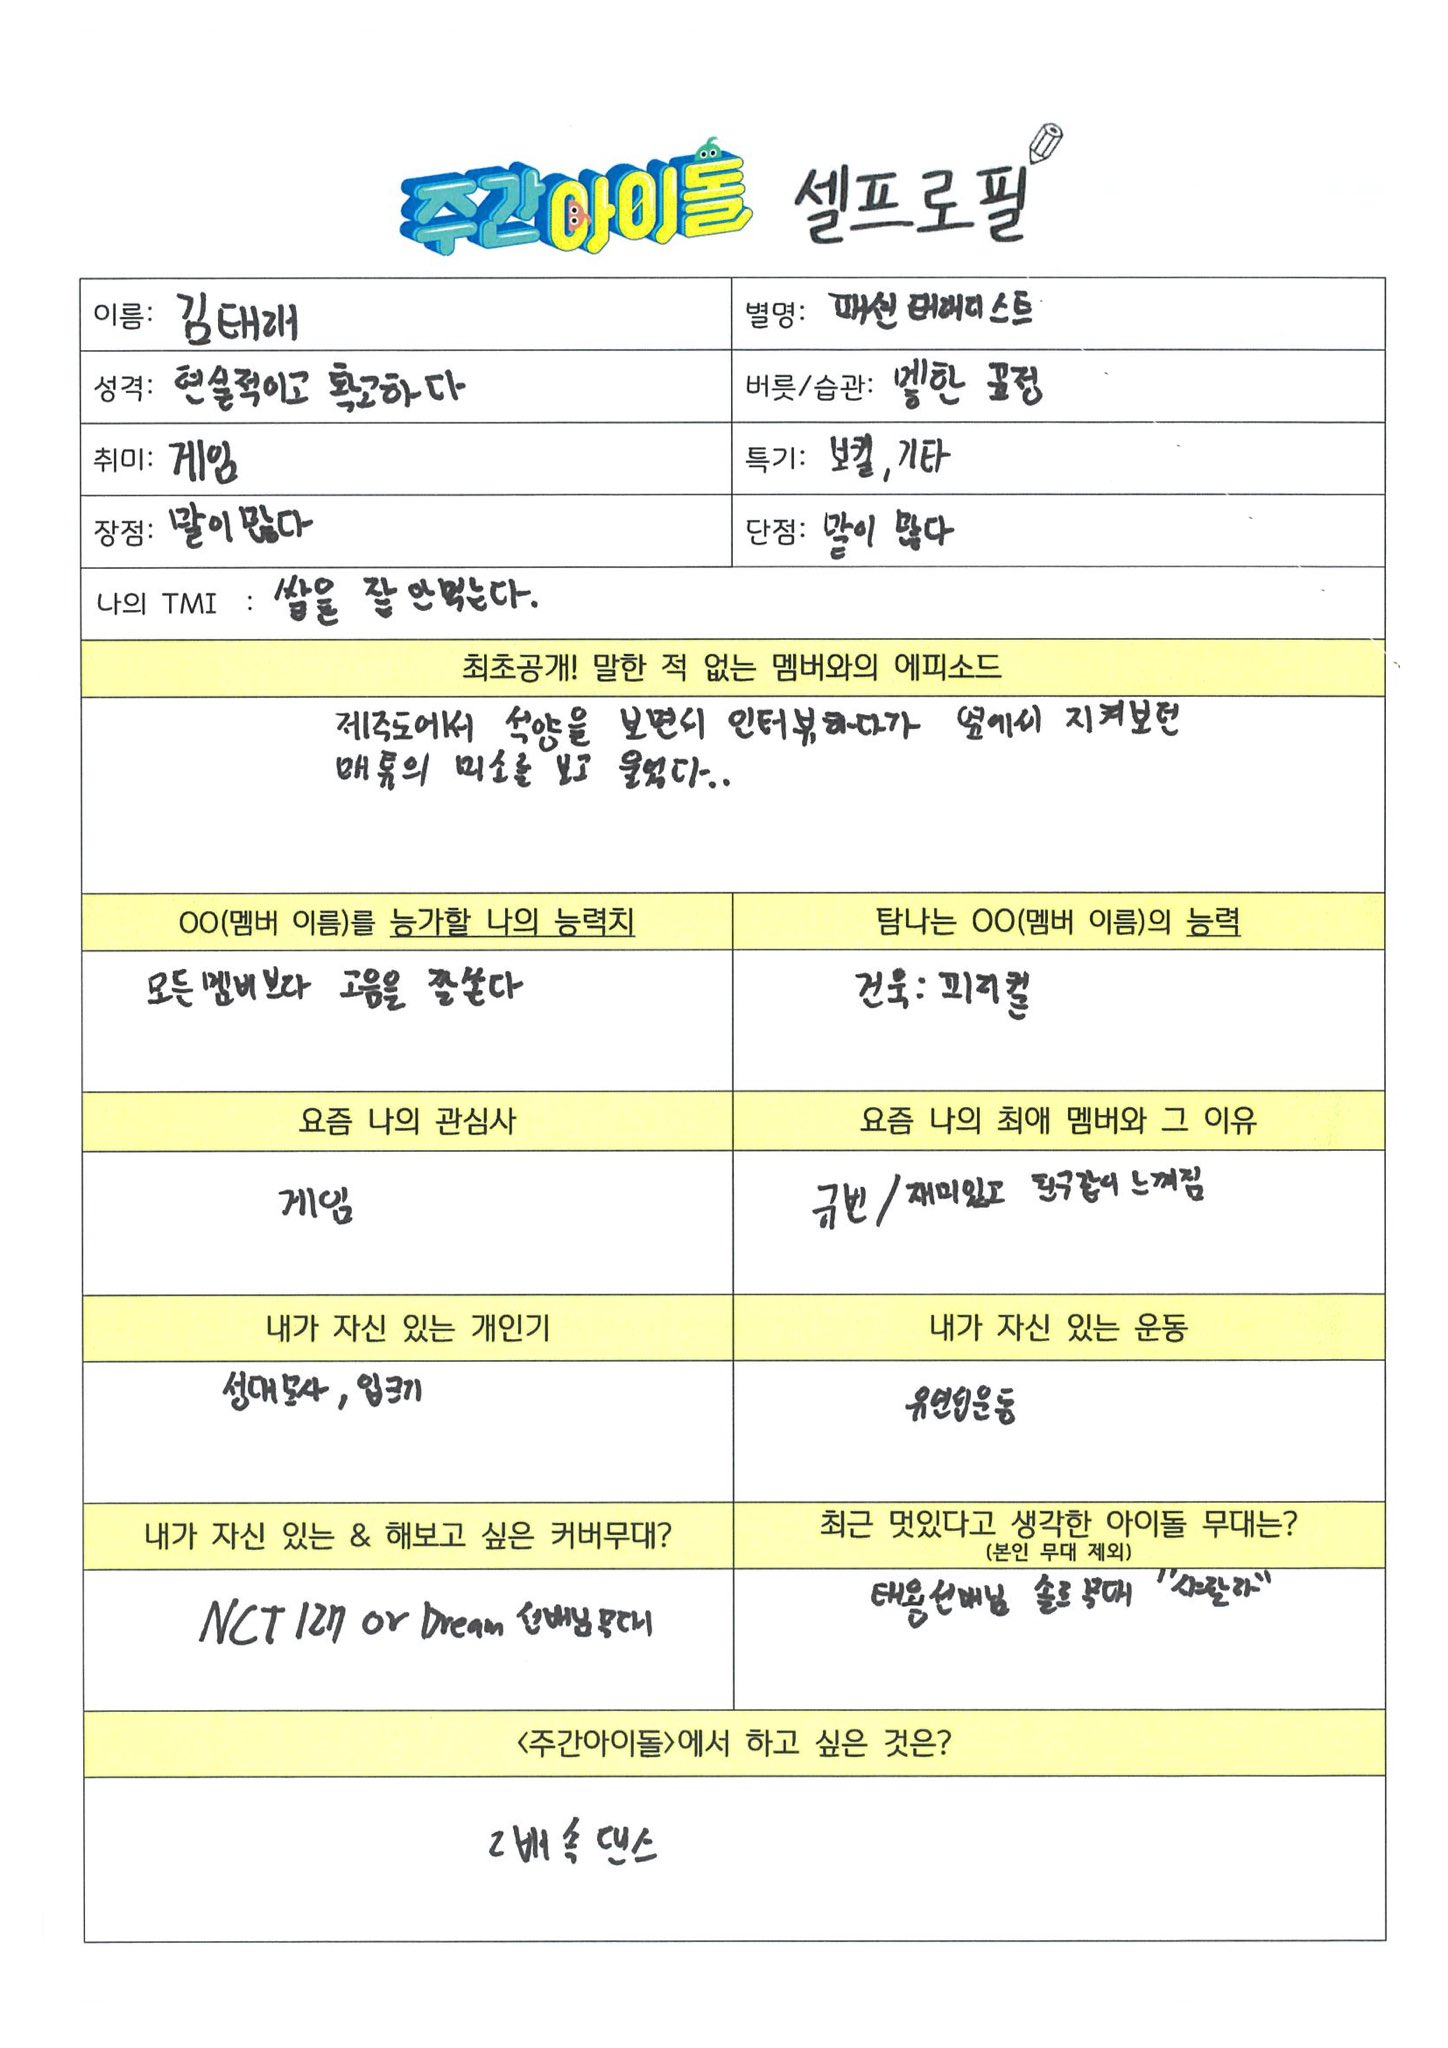 주간아이돌 셀프로필
이름: 김태래
별명: 패션 태래디스트
성격: 현실적이고 확고하다
버릇/습관: 멍한 표정
취미: 게임
특기: 보컬, 기타
장점: 말이 많다
단점: 말이 많다
나의 TMI : 쌈을 잘 안먹는다.
최초공개! 말한 적 없는 멤버와의 에피소드
제주도에서 석양을 보면서 인터뷰하다가 옆에서 지켜보던
매튜의 미소를 보고 울었다..
OO(멤버 이름)를 능가할 나의 능력치
탐나는 OO(멤버 이름)의 능력
모든멤버보다 고음을 잘쏜다
건욱: 피지컬
요즘 나의 관심사
요즘 나의 최애 멤버와 그 이유
게임
규빈/재미있고 친구같이 느껴짐
내가 자신 있는 개인기
내가 자신 있는 운동
성대모사, 입크기
유연성운동
내가 자신 있는 & 해보고 싶은 커버무대?
최근 멋있다고 생각한 아이돌 무대는?
(본인 무대 제외)
NCT 127 or Dream 선배님무대
태용선배님 솔로무대 "샤랄라"
<주간아이돌>에서 하고 싶은 것은?
2배속 댄스